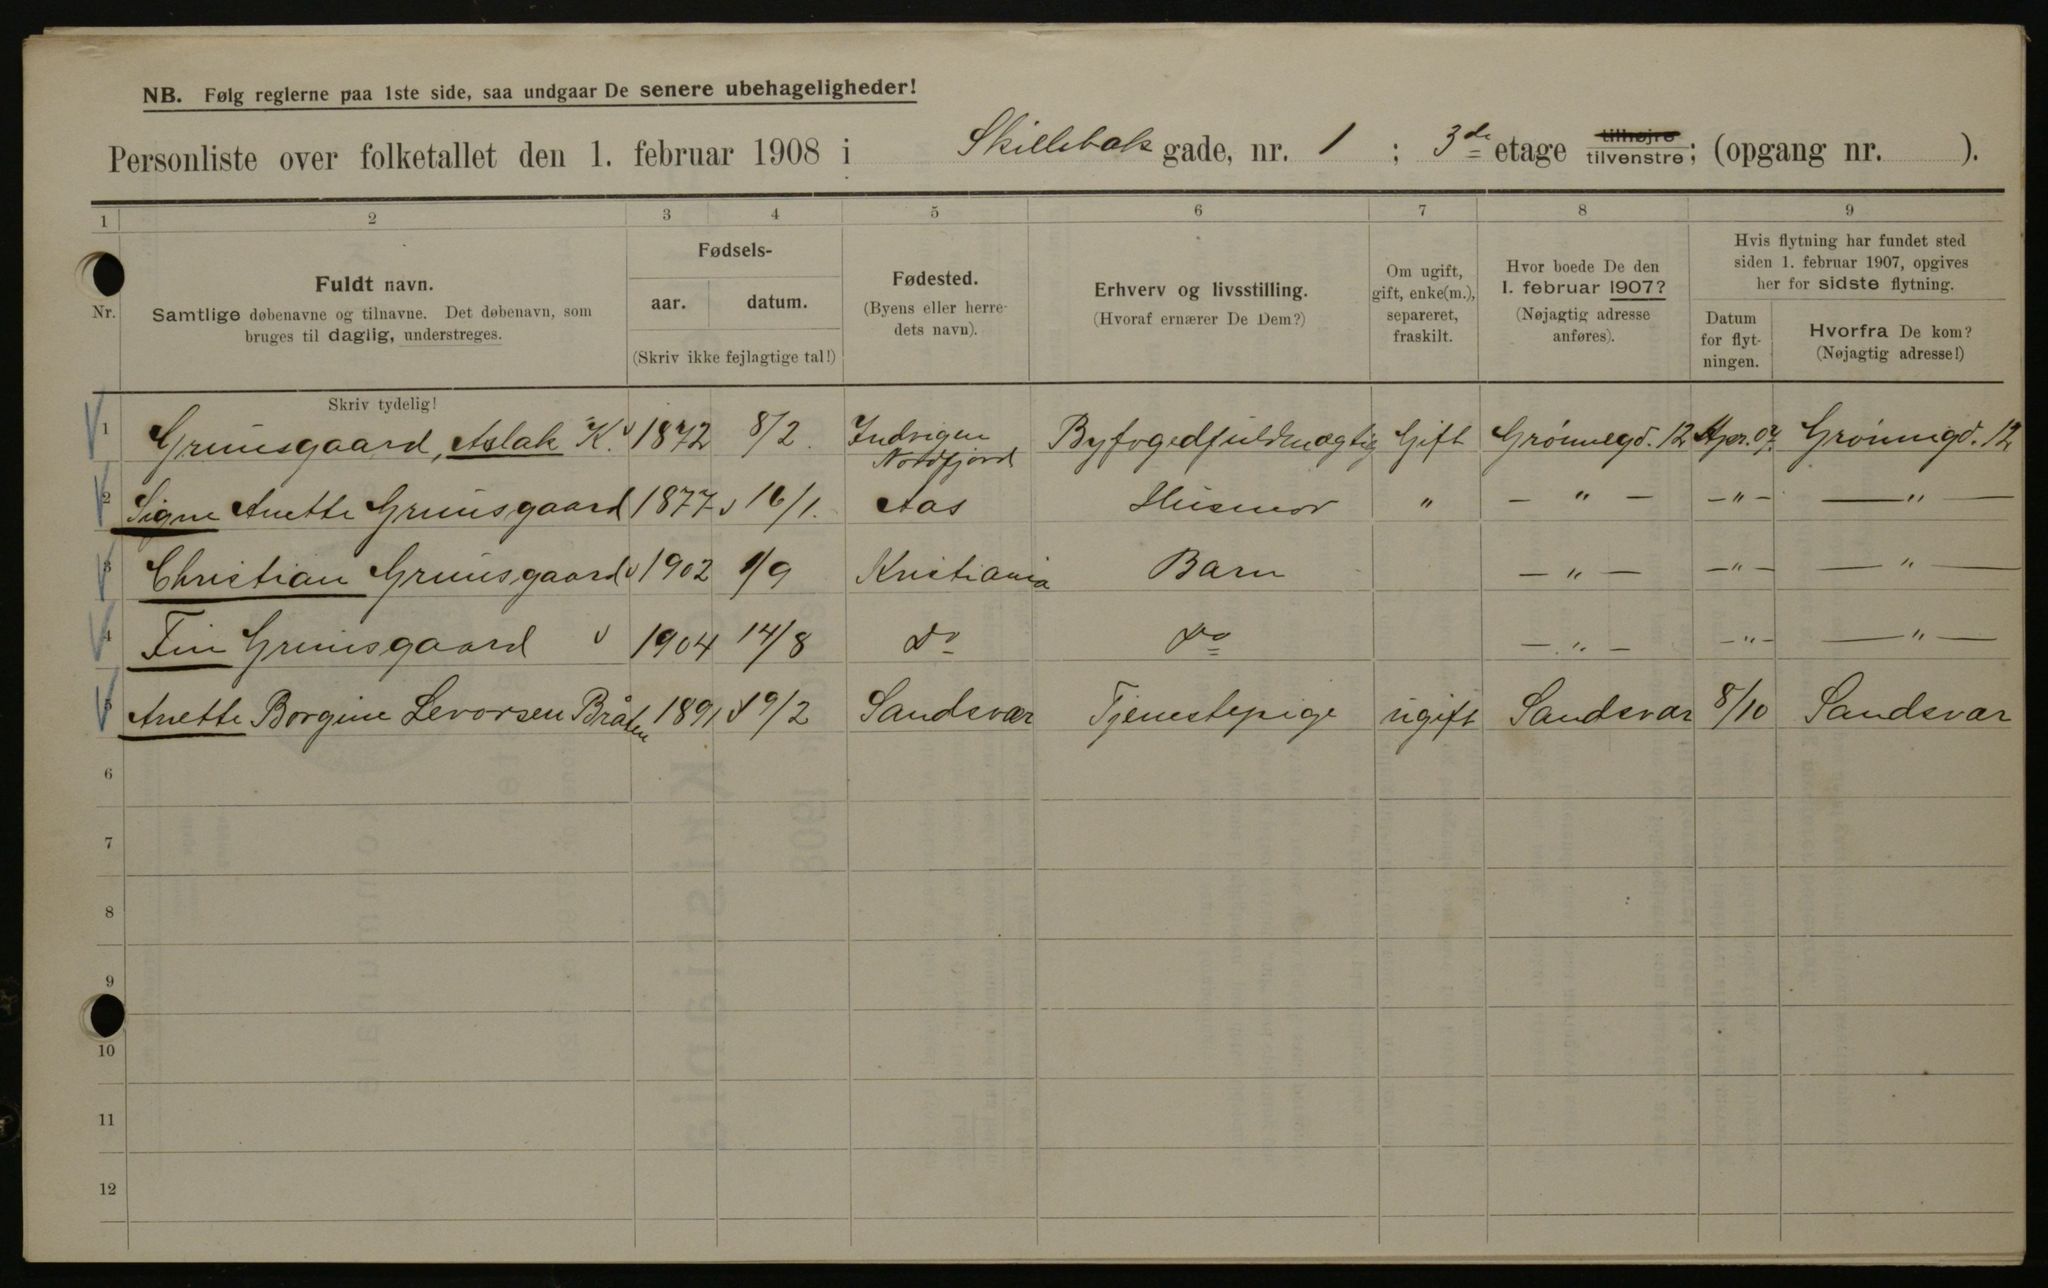 NB. Følg reglerne paa 1ste side, saa undgaar De senere ubehageligheder!
Personliste over folketallet den 1. februar 1908 i Skillebæk gade, nr. 1 ; 3de etage tilhøjre tilvenstre; (opgang nr. ).
1 2 3 4 5 6 7 8 9
Nr.
Fuldt navn.
Samtlige døbenavne og tilnavne. Det døbenavn, som
bruges til daglig, understreges.
Fødsels-
aar. datum.
(Skriv ikke fejlagtige tal!)
Fødested.
(Byens eller herre-
dets navn).
Erhverv og livsstilling.
(Hvoraf ernærer De Dem?)
Om ugift,
gift, enke(m.),
separeret,
fraskilt.
Hvor boede De den
1. februar 1907?
(Nøjagtig adresse
anføres).
Hvis flytning har fundet sted
siden 1. februar 1907, opgives
her for sidste flytning.
Datum
for flyt-
ningen.
Hvorfra De kom?
(Nøjagtig adresse!)
Skriv tydelig!
1 Grimsgaard, Aslak K. 1872 8/2. Indvigen Nordfjord Byfogedfuldmægtig Gift Grønnegd. 12 Apr. 07. Grønnegd. 12
2 Signe Anette Grimsgaard 1877 16/1. Aas Husmor " — " — — " — — " —
3 Christian Grimsgaard 1902 1/9 Kristiania Barn — " — — " — — " —
4 Fin Grimsgaard 1904 14/8 Do Do — " — — " — — " —
5 Anette Borgine Levorsen Bråten 1891 19/2 Sandsvær Tjenestepige ugift Sandsvær 8/10 Sandsvær
6
7
8
9
10
11
12